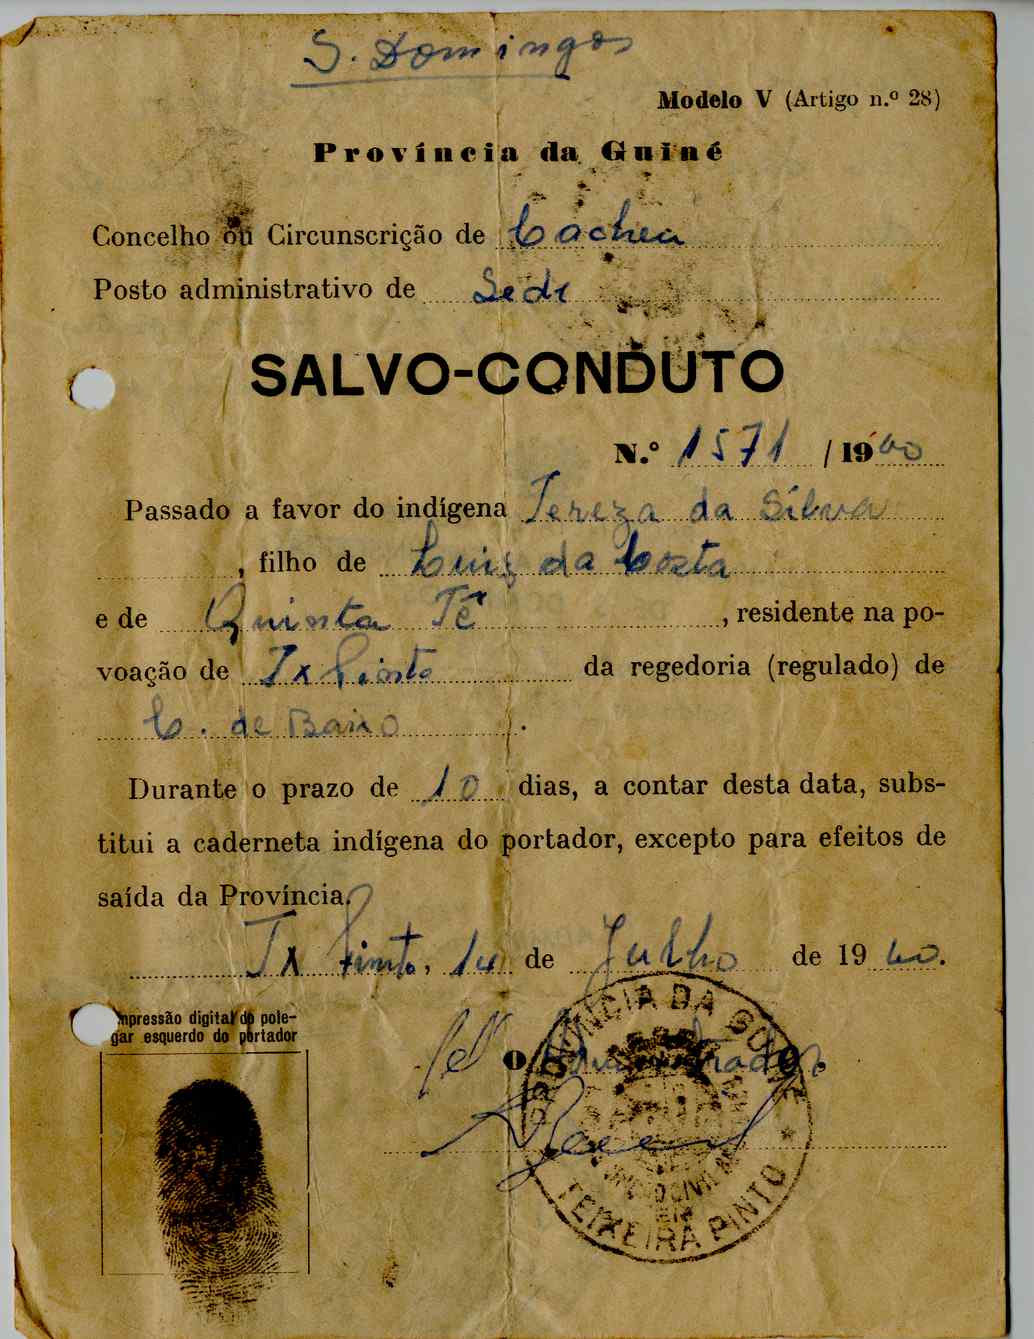 S. Domingos
Modelo V (Artigo n.º 28)
Província da Guiné
Concelho ou Circunscrição de Cacheu
Posto administrativo de Sede
SALVO-CONDUTO
N.º 1571 / 1960
Passado a favor do indígena Tereza da Silva
, filho de Luiz da Costa
e de Quinta Tê , residente na po-
voação de Tx Pinto da regedoria (regulado) de
C. de Baixo .
Durante o prazo de 10 dias, a contar desta data, subs-
titui a caderneta indígena do portador, excepto para efeitos de
saída da Província.
Tx Pinto, 14 de Julho de 1960.
mpressão digital do pole-
gar esquerdo do portador
Pel O Administrador
PROVÍNCIA DA GUINÉ
TEIXEIRA PINTO